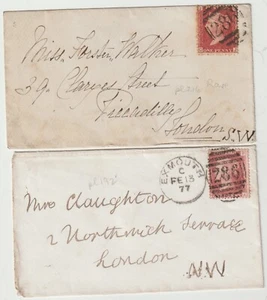 Miss Forster Walker
39 Clarges Street
Piccadilly
London
S.W
EXMOUTH
C
FE 13
77
286
Mrs Claughton
2 Northwick Terrace
London
N.W